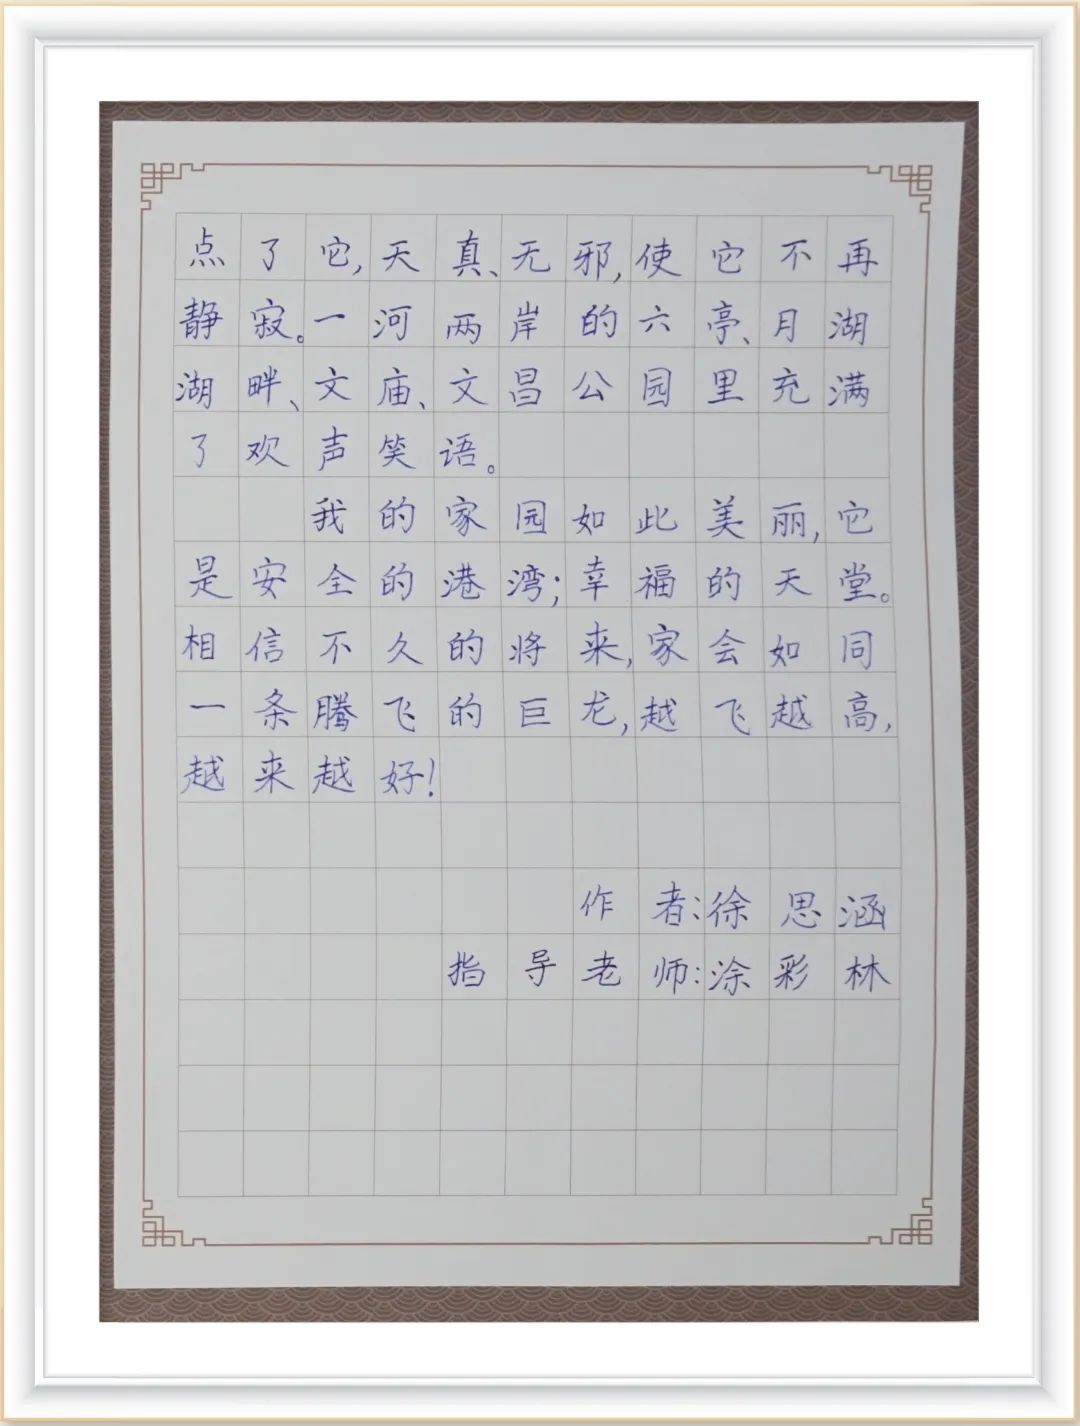 点了它,天真、无邪,使它不再
静寂。一河两岸的六亭、月湖
湖畔、文庙、文昌公园里充满
了欢声笑语。
我的家园如此美丽,它
是安全的港湾;幸福的天堂。
相信不久的将来,家会如同
一条腾飞的巨龙,越飞越高,
越来越好!
作者:徐思涵
指导老师:涂彩林